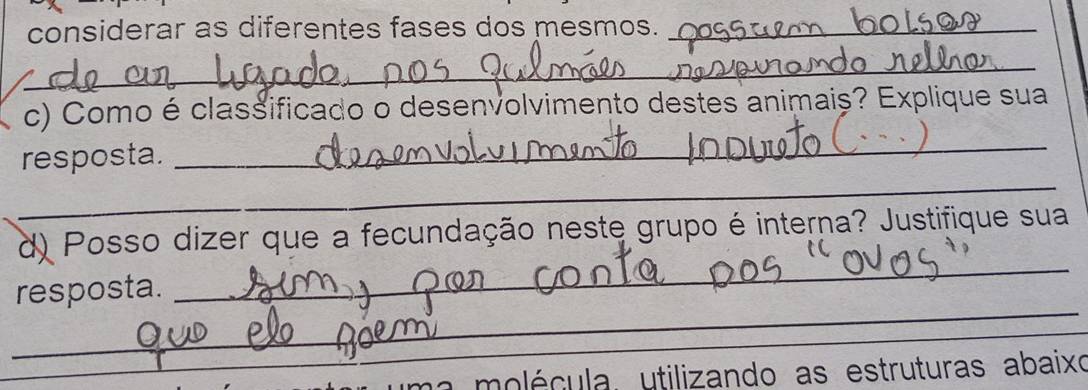 considerar as diferentes fases dos mesmos. possuem bolsas
de ar ligada nos pulmões respirando
c) Como é classificado o desenvolvimento destes animais? Explique sua
resposta. desenvolvimento Indireto (...)
d) Posso dizer que a fecundação neste grupo é interna? Justifique sua
resposta. Sim, por conta dos "ovos"
que ele poem
uma molécula, utilizando as estruturas abaixo